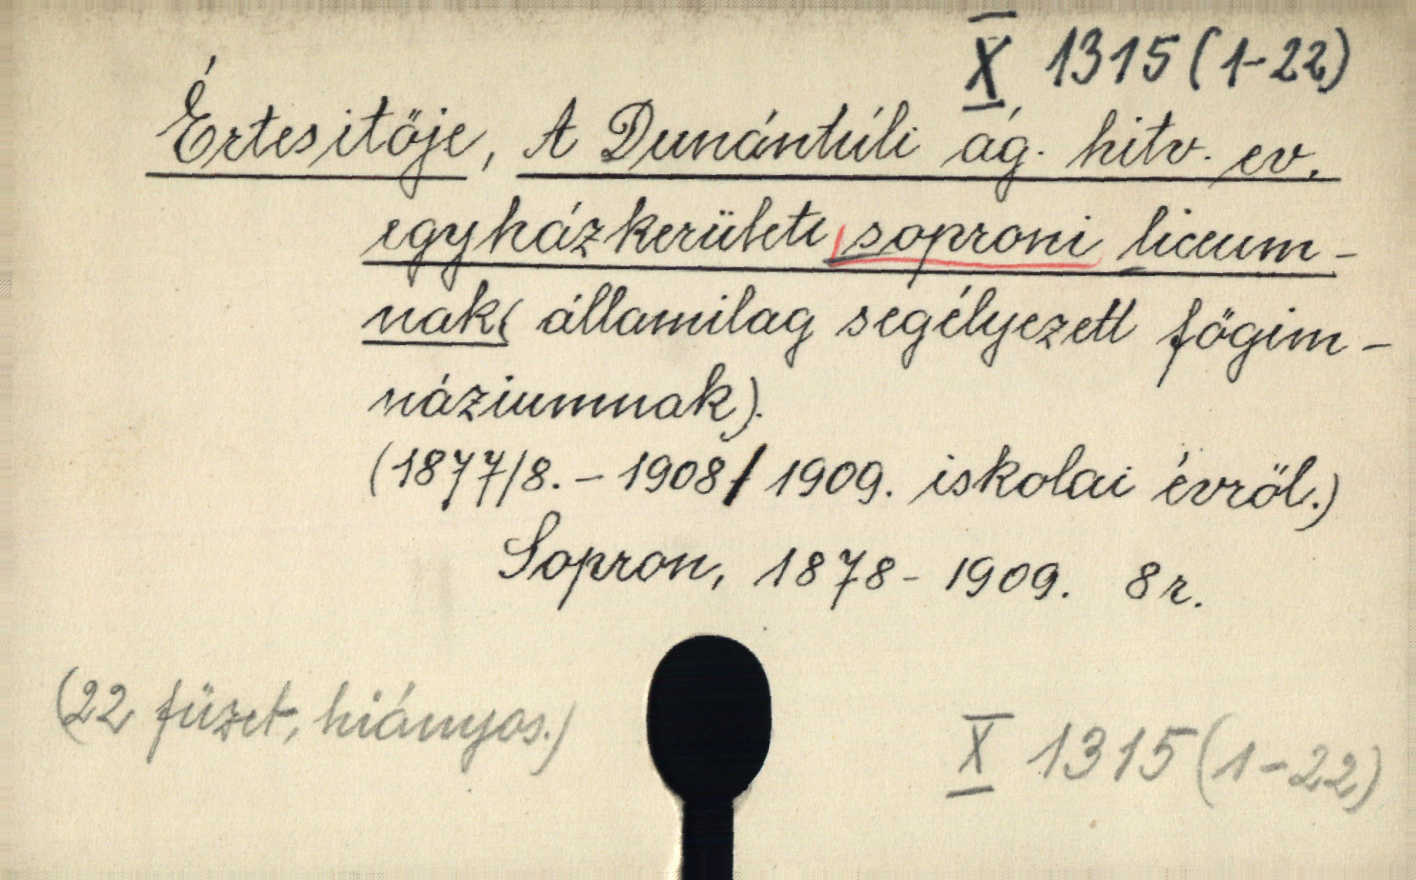 X 1315 (1-22)
Értesitője, A Dunántúli ág. hitv. ev.
egyházkerületi soproni liceum-
nak (államilag segélyezett főgim-
náziumnak).
(1877/8. - 1908/1909. iskolai évről.)
Sopron, 1878- 1909. 8r.
(22 füzet, hiányos.)
X 1315 (1-22)